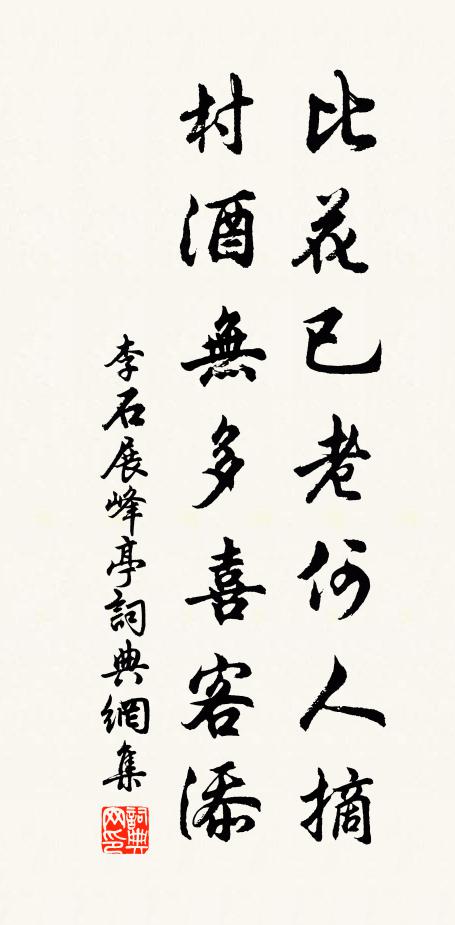 比花已老何人摘
村酒無多喜客添
李石展峰亭詞典網集
詞典
网印